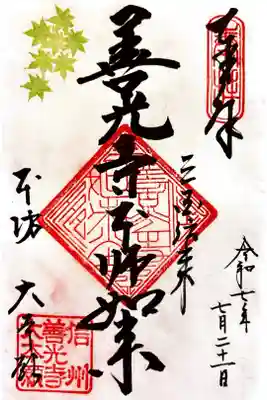 奉拝
令和七年
七月二十一日
三国伝来
善光寺本師如来
本坊
大本願
信州
善光寺